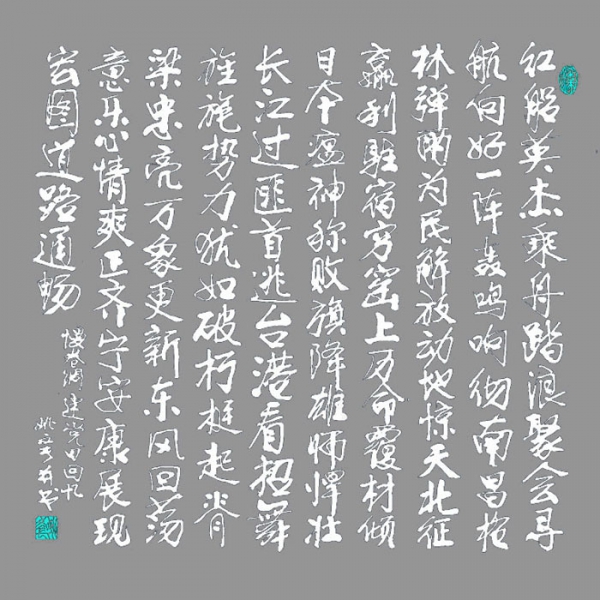 红船英杰乘舟踏浪聚会寻
航向好一阵轰鸣响彻南昌枪
林弹雨为民解放动地惊天北征
赢利驻宿穷窑上万命覆材倾
日本瘟神称败旗降雄师悍壮
长江过匪首逃台港看招舞
旌旄势力犹如破朽挺起脊
梁忠亮万象更新东风回荡
意乐心情爽正齐宁安康展现
宏图道路通畅
慢卷绸建党回忆
姚书